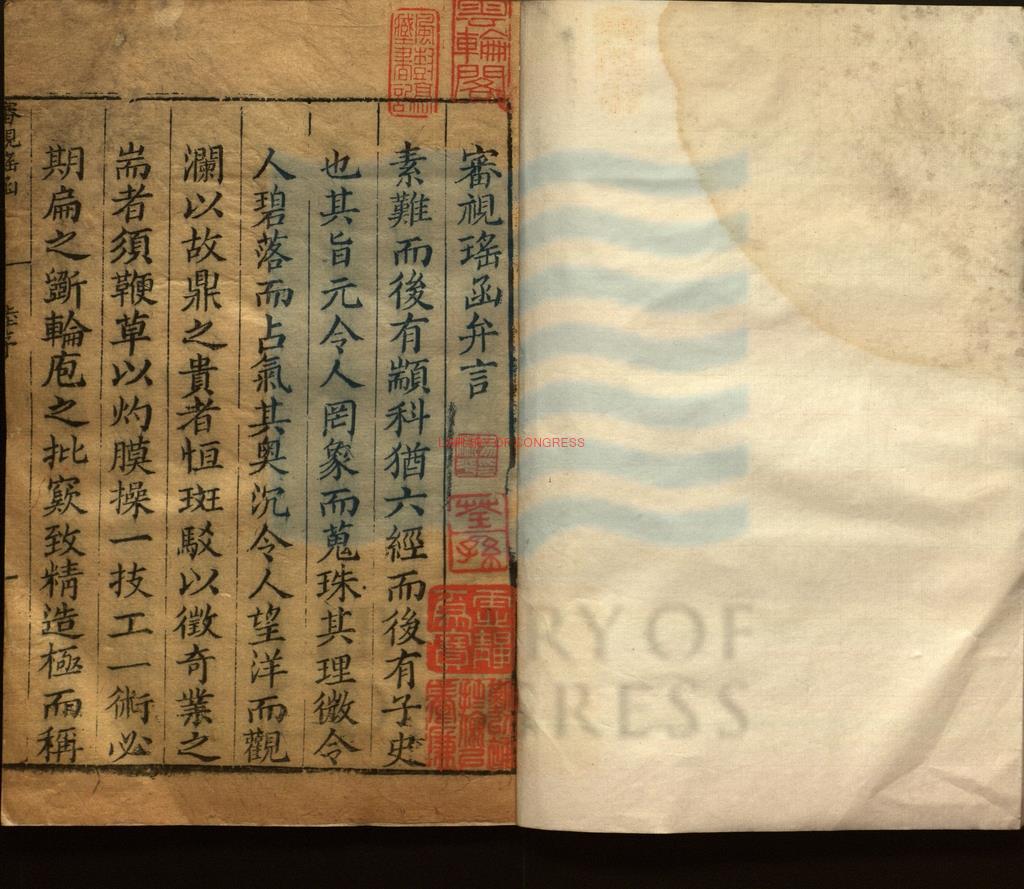 審視瑤函弁言
素難而後有顓科猶六經而後有子史
也其旨元令人罔象而蒐珠其理微令
人碧落而占氣其奧沉令人望洋而觀
瀾以故鼎之貴者恒斑駁以徵奇業之
耑者須鞭草以灼膜操一技工一術必
期扁之斲輪庖之批窾致精造極而稱
審視瑤函
雲輪閣
荃孫
LIBRARY OF CONGRESS
RY OF
RESS